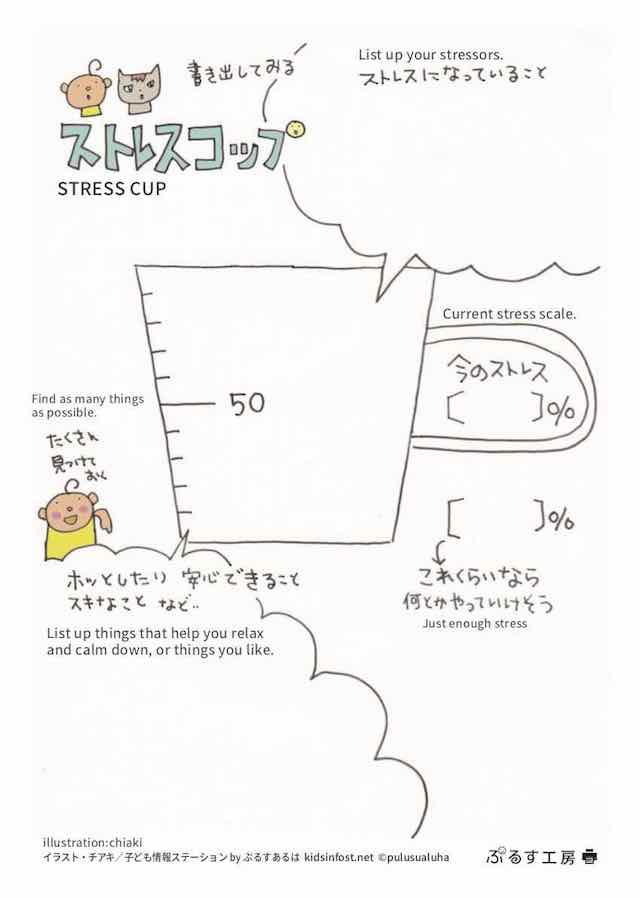 書き出してみる
List up your stressors.
ストレスになっていること
ストレスコップ
STRESS CUP
Current stress scale.
今のストレス
[ ]%
50
Find as many things
as possible.
たくさん
見つけて
おく
[ ]%
これくらいなら
何とかやっていけそう
Just enough stress
ホッとしたり 安心できること
スキなこと など..
List up things that help you relax
and calm down, or things you like.
illustration:chiaki
イラスト・チアキ／子ども情報ステーション by ぷるすあるは kidsinfost.net ©pulusualuha
ぷるす工房